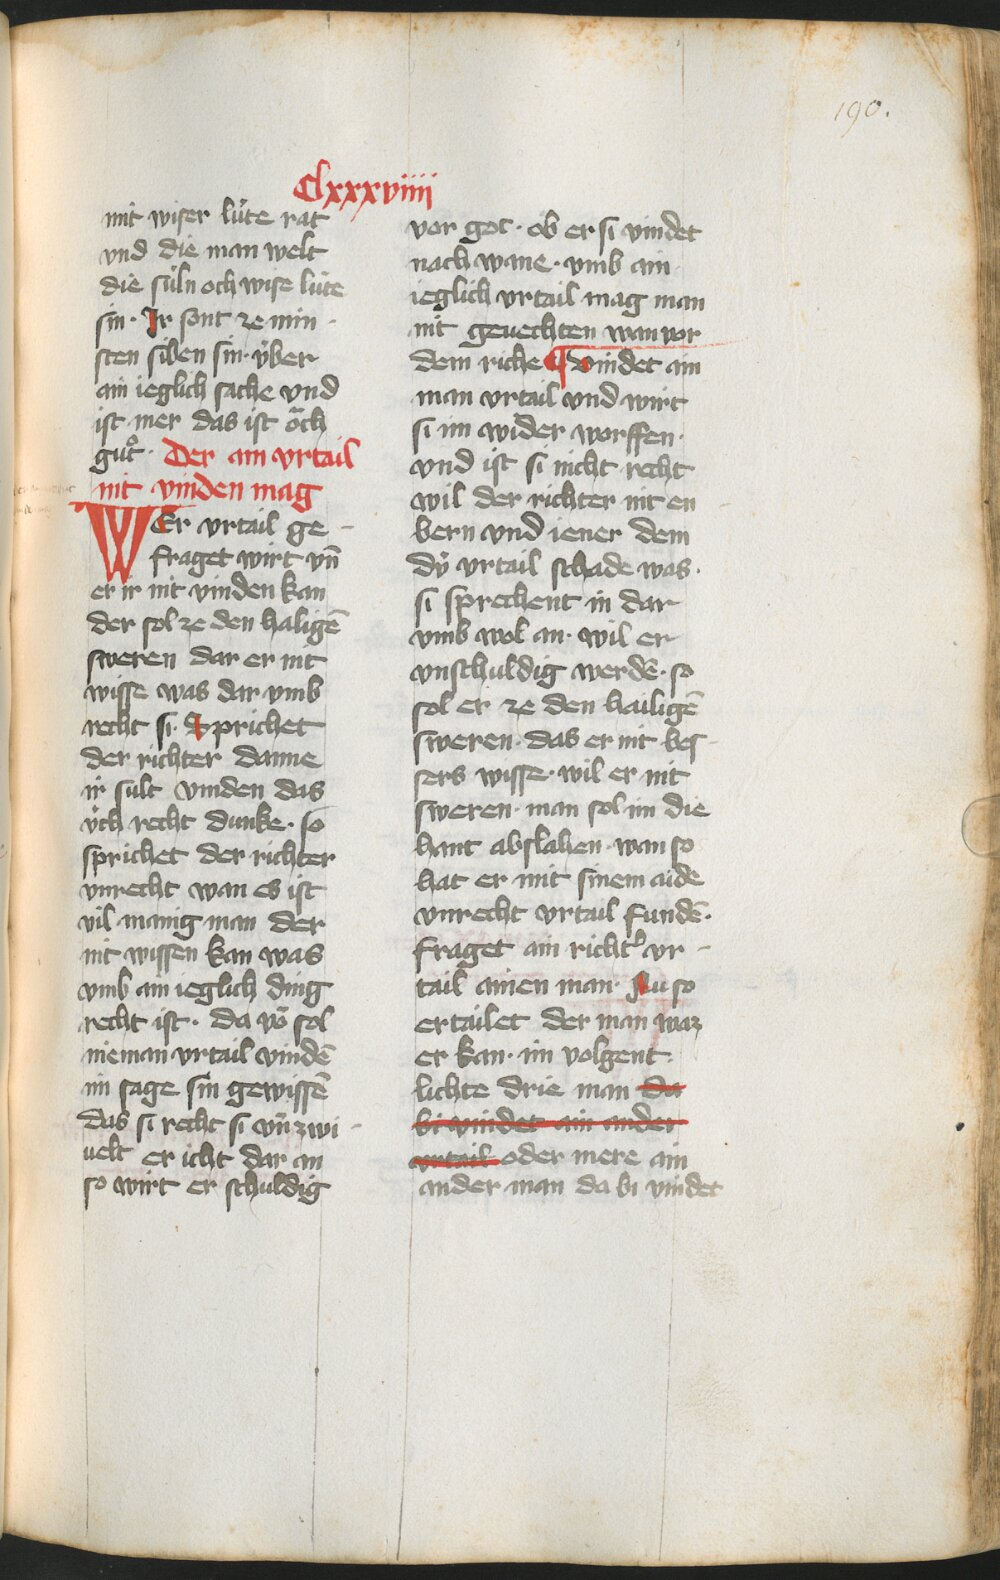 190.
Clxxxviiii
mit wiser lu̍te rat
vnd die man welt
die su̍ln och wise lu̍te
sin· Ir sont ze min -
sten siben sin· v̇ber
ain ieglich sache vnd
ist mer das ist o̍ch
guͦt· Der ain vrtail
nit vinden mag
WEr vrtail ge -
fraget wirt vn̄
er ir nit vinden kan
der sol ze den haligē
sweren dar er nit
wisse was dar vmb
recht si· Sprichet
der richter danne
ir sult vinden das
v̍ch recht dunke· so
sprichet der richter
vnrecht wan es ist
vil manig man der
nit wissen kan was
vmb ain ieglich ding
recht ist· da vō sol
nieman vrtail vindē
im sage sin gewissē
das si recht si vn̄ zwi -
uelt er icht dar an
so wirt er schuldig
vor got· ob er si vindet
nach wane· vmb ain
ieglich vrtail mag man
nit geuechten wan vor
dem riche ¶ vindet ain
man vrtail vnd wirt
si im wider worffen·
vnd ist si nicht recht
wil der richter nit en
bern vnd iener dem
dy̍ vrtail schade was·
si sprechent in dar
vmb wol an· wil er
vnschuldig werdē· so
sol er ze den hailigē
sweren· das er nit bes -
sers wisse· wil er nit
sweren· man sol im die
hant abslahen· wan so
hat er mit sinem aide
vnrecht vrtail fundē·
fraget ain richt̓ vr -
tail ainen man· Nu so
ertailet der man waz
er kan· im volgent
lichte drie man da
bi vindet ain ander
vrtail oder mere ain
ander man da bi vindet